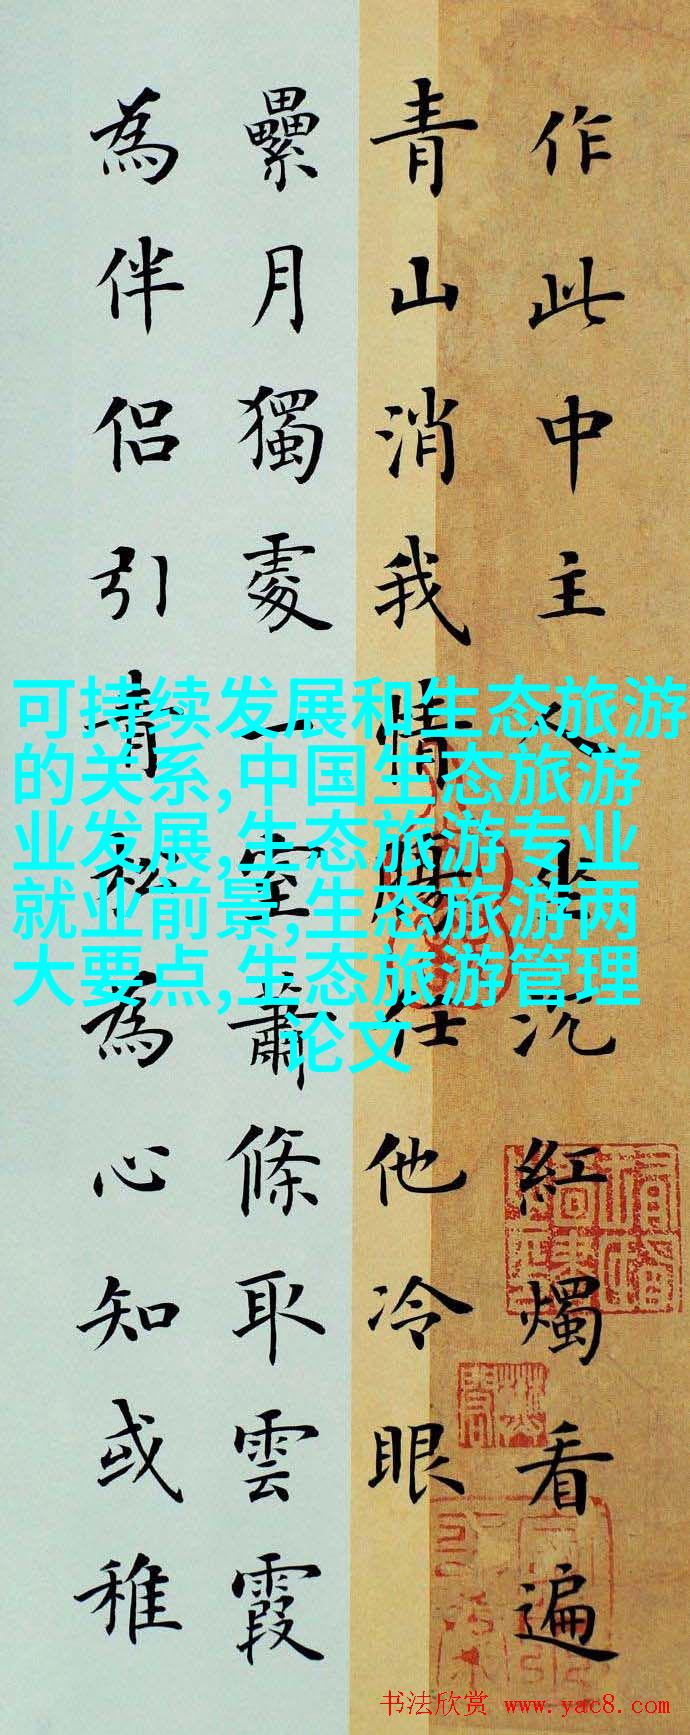 作此中主人坐沉紅燭看遍
青山消我情腸任他冷眼
纍月獨處一室蕭條取雲霞
為伴侶引青松為心知或稚
可持续发展和生态旅游
的关系,中国生态旅游
业发展,生态旅游专业
就业前景,生态旅游两
大要点,生态旅游管理
论文
书法欣赏 www.yac8.com